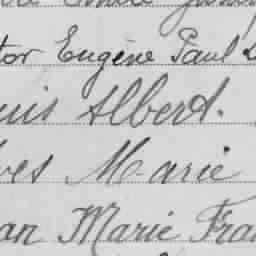 tor Eugène Paul
uis Albert.
ves Marie
an Marie Fra